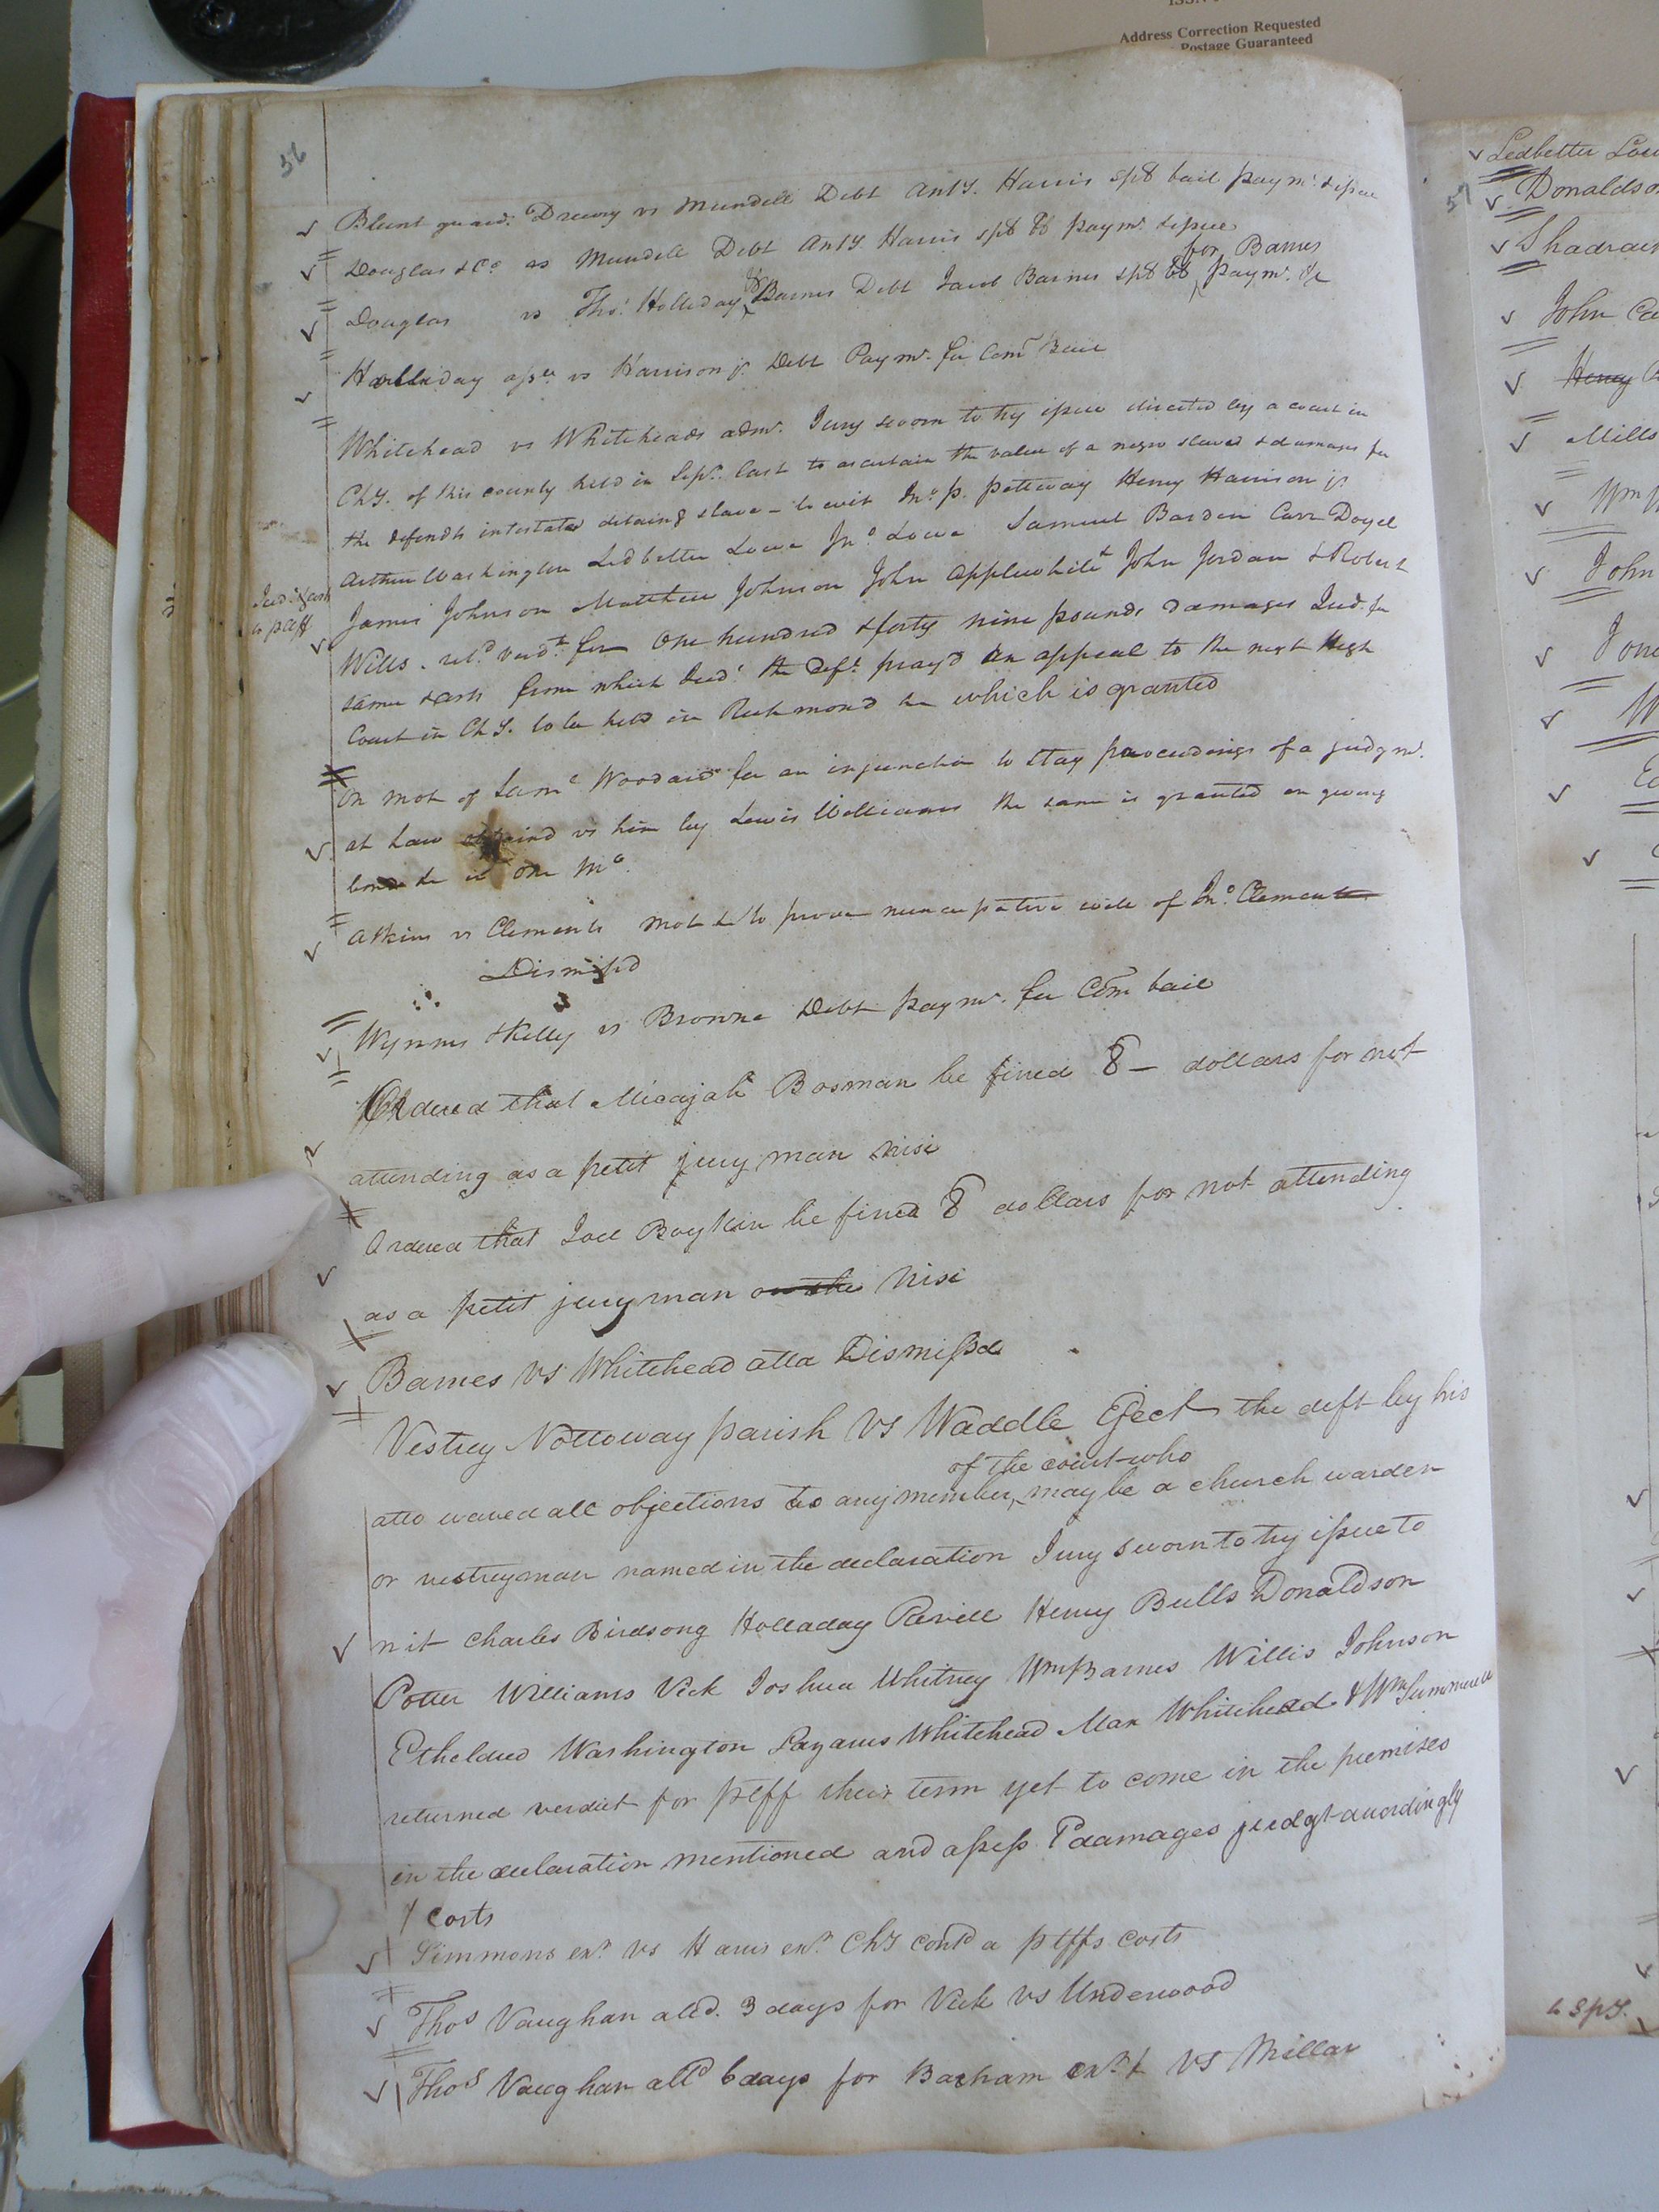 ISSN
Address Correction Requested
Postage Guaranteed
56
Blunt guard. Drewry vs Mundell Debt Anty. Harris spb bail paymt. & issue
Douglas & Co vs Mundell Debt Anty. Harris spb bb paymt. & issue
for Barnes
Douglas vs Thos. Holliday & Barnes Debt Jacob Barnes spb bb paymt. &c
Holliday assee vs Harrison jr. Debt Paymt. for Com Bail
Whitehead vs Whiteheads admr. Jury sworn to try issue directed by a court in
Chy. of this county held in Sepr. last to ascertain the value of a negro slaves & damages for
the defendts intestates detaing slave - to wit Jno. p. pettway Henry Harrison jr
Arthur Washington Ledbetter Lowe Jno. Lowe Samuel Barden Carr Doyel
James Johnson Matthew Johnson John Applewhite John Jordan & Robert
Jud. 
to plff
Wills. retd verdt. for One hundred & forty nine pounds damages Jud. for
same & costs from which Jud. the deft. pray'd an appeal to the next High
Court in Chy. to be held in Richmond &c which is granted
On mot of Saml Woodard for an injunction to stay proceedings of a judgmt.
at Law obtaind vs him by Lewis Williams the same is granted on giving
bond &c in One mo.
Atkins vs Clements mot &c to prove nuncupative will of Jno. Clements
Dismissd
Wynns & Kelly vs Browne Debt paymt. for Com bail
Ordered that Micajah Bosman be fined 8 - dollars for not
attending as a petit jury man nisi
Ordered that Joel Boykin be fined 8 dollars for not attending
as a petit juryman on the nisi
Barnes vs Whitehead atta Dismissd
Vestrey Nottoway parish vs Waddle Eject the deft by his
of the court who
atto waved all objections to any member, may be a church warden
or vestreyman named in the declaration Jury sworn to try issue to
wit Charles Birdsong Holladay Revill Henry Bulls Donaldson
Potter Williams Vick Joshua Whitney Wm Barnes Willis Johnson
Etheldred Washington Lazarus Whitehead Max Whitehead & Wm Summerell
returned verdict for plff their term yet to come in the premises
in the declaration mentioned and assess 1d damages judgt accordingly
& costs
Simmons exr. vs Harris exr. Chy contd a plffs costs
Thos Vaughan alld. 3 days for Vick vs Underwood
Thos Vaughan alld 6 days for Barham exr. & vs Millar
57
Ledbetter Low
Donaldso
Shadrac
John Ca
Henry
Mills
Wm
John